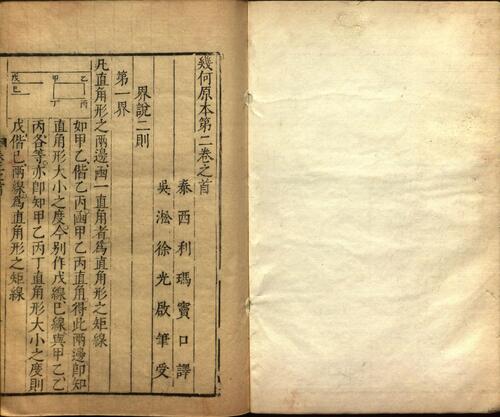 幾何原本第二卷之首
泰西利瑪竇口譯
吳淞徐光啟筆受
界說二則
第一界
凡直角形之兩邊函一直角者為直角形之矩線
如甲乙偕乙丙函甲乙丙直角得此兩邊即知
直角形大小之度今別作戊線巳線與甲乙乙
丙各等亦即知甲乙丙丁直角形大小之度則
戊偕巳兩線為直角形之矩線
乙
丙
甲
丁
戊
巳